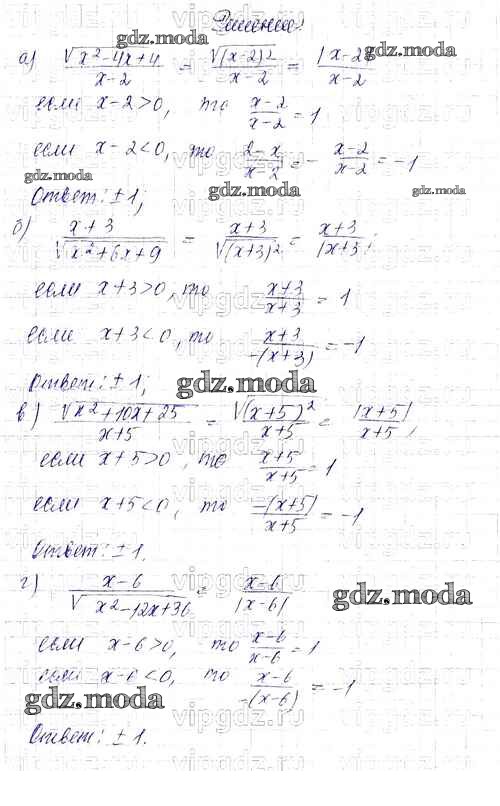 Решение:
а) √(x²-4x+4)/(x-2) = √((x-2)²)/(x-2) = |x-2|/(x-2)
если x-2>0, то (x-2)/(x-2) = 1
если x-2<0, то (2-x)/(x-2) = -(x-2)/(x-2) = -1
Ответ: ±1;
б) (x+3)/√(x²+6x+9) = (x+3)/√((x+3)²) = (x+3)/|x+3|;
если x+3>0, то (x+3)/(x+3) = 1
если x+3<0, то (x+3)/(-(x+3)) = -1
Ответ: ±1;
в) √(x²+10x+25)/(x+5) = √((x+5)²)/(x+5) = |x+5|/(x+5),
если x+5>0, то (x+5)/(x+5) = 1
если x+5<0, то (-(x+5))/(x+5) = -1
Ответ: ±1.
г) (x-6)/√(x²-12x+36) = (x-6)/|x-6|
если x-6>0, то (x-6)/(x-6) = 1
если x-6<0, то (x-6)/(-(x-6)) = -1
Ответ: ±1.
gdz.moda
gdz.moda
gdz.moda
gdz.moda
gdz.moda
gdz.moda
gdz.moda
gdz.moda
vipgdz.ru